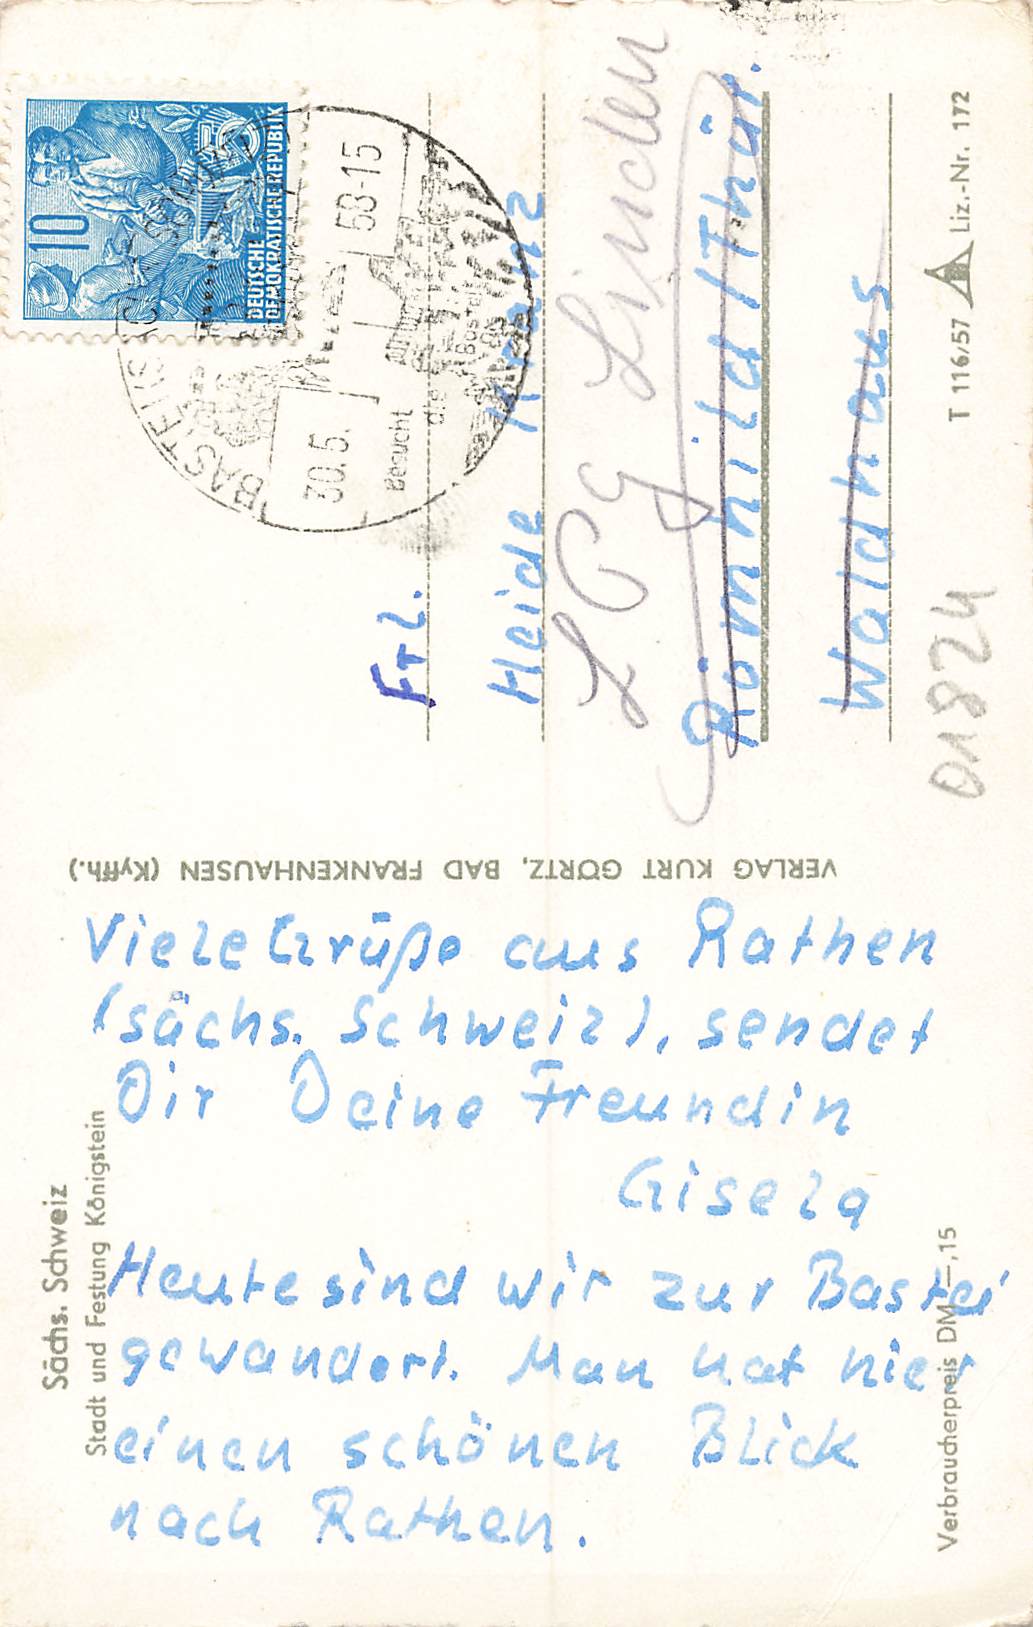 Sächs. Schweiz
Stadt und Festung Königstein
Viele Grüße aus Rathen
(sächs. Schweiz), sendet
Dir Deine Freundin
Gisela
Heute sind wir zur Bastei
gewandert. Man hat hier
einen schönen Blick
nach Rathen.
Verbraucherpreis DM —,15
VERLAG KURT GÖRTZ, BAD FRANKENHAUSEN (Kyffh.)
10
DEUTSCHE
DEMOKRATISCHE REPUBLIK
30.5. 58-15
Besucht
die
Bastei
Frl.
Heide Kranz
LPG Linden
Römhild/Thür.
Waldhaus
T 116/57 Liz.-Nr. 172
01824